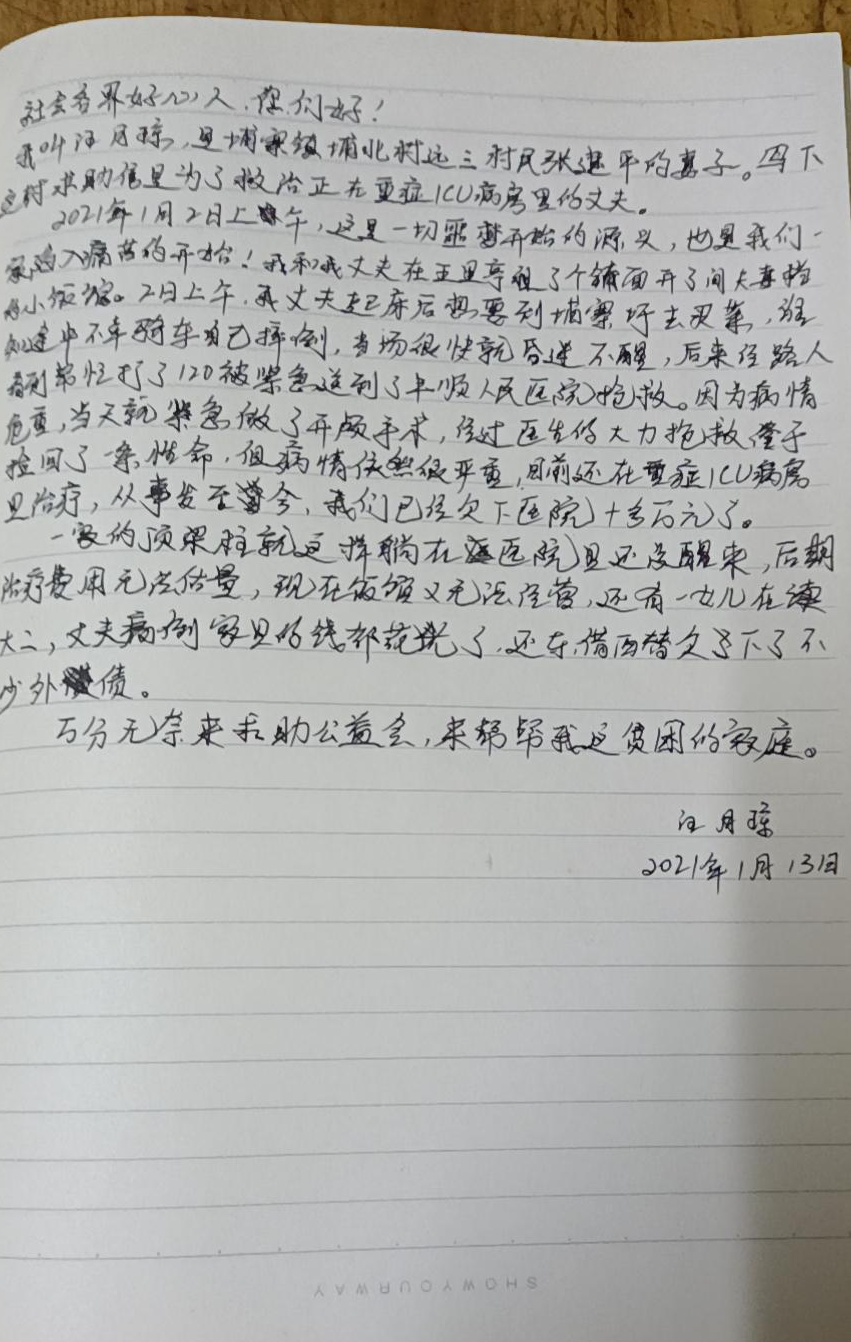 社会各界好心人,您们好!
我叫汪月琼,是埔寨镇埔北村远三村民张進平的妻子。写下
这封求助信是为了救治正在重症ICU病房里的丈夫。
2021年1月2日上午,这是一切噩梦开始的源头,也是我们一
家陷入痛苦的开始!我和我丈夫在五里亭租了个铺面开了间夫妻档
的小饭馆。2日上午,我丈夫起床后想要到埔寨圩去买菜,谁
知途中不幸骑车自己摔倒,当场很快就昏迷不醒,后来经路人
看到帮忙打了120被紧急送到了丰顺人民医院抢救。因为病情
危重,当天就紧急做了开颅手术,经过医生的大力抢救终于
捡回了一条性命,但病情依然很严重,目前还在重症ICU病房
里治疗,从事发至今,我们已经欠下医院十多万元了。
一家的顶梁柱就这样躺在医院且还没醒来,后期
治疗费用无法估量,现在饭馆又无法经营,还有一女儿在读
大二,丈夫病倒家里的钱都花光了,还东借西替欠下了不
少外债。
万分无奈来求助公益会,来帮帮我这贫困的家庭。
汪月琼
2021年1月13日
SHOWYOURWAY